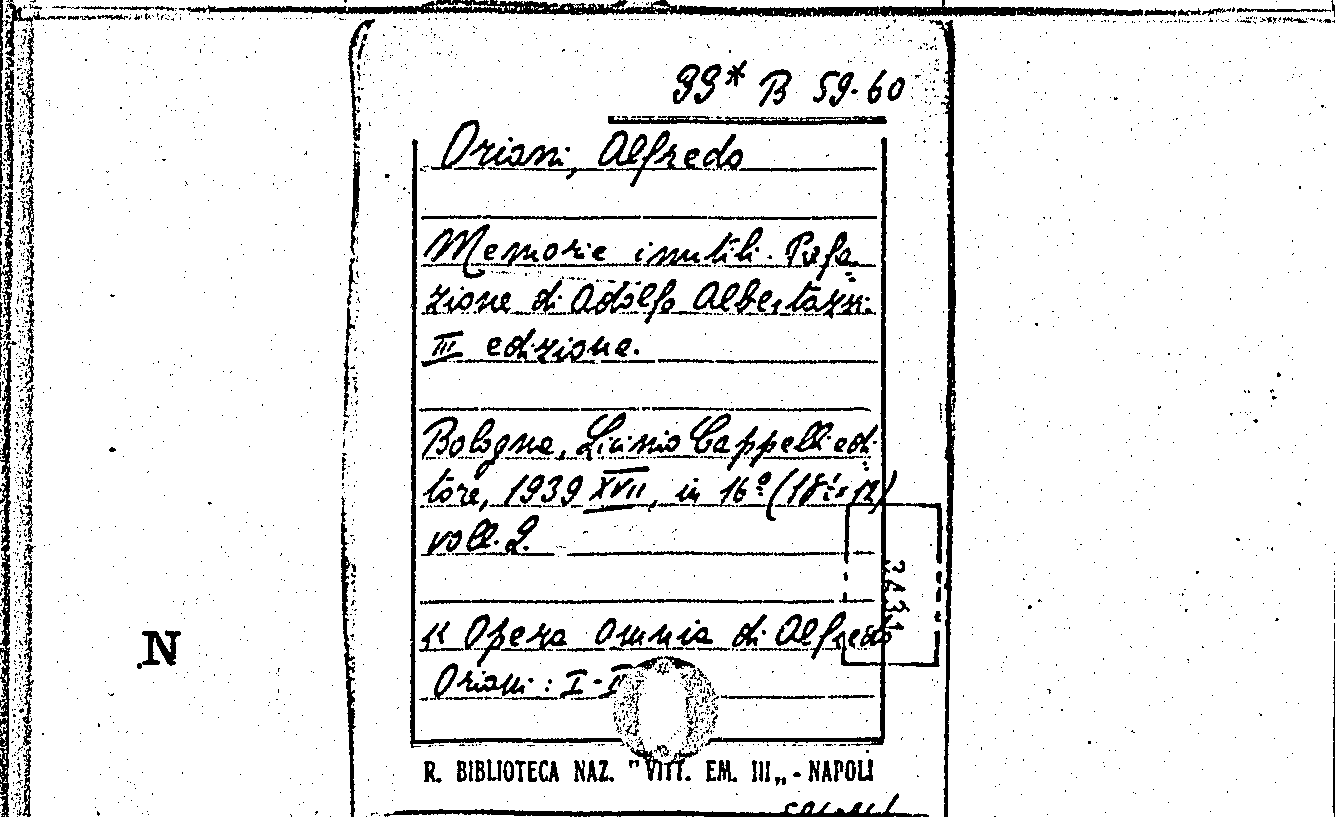 99* B 59-60
Oriani, Alfredo
Memorie inutili. Prefa-
zione di Adolfo Albertazzi.
III edizione.
Bologna, Licinio Cappelli edi-
tore, 1939 XVII, in 16º (18½ x 12)
voll. 2.
Opera omnia di Alfredo
Oriani: I-
N
R. BIBLIOTECA NAZ. "VITT. EM. III„ - NAPOLI